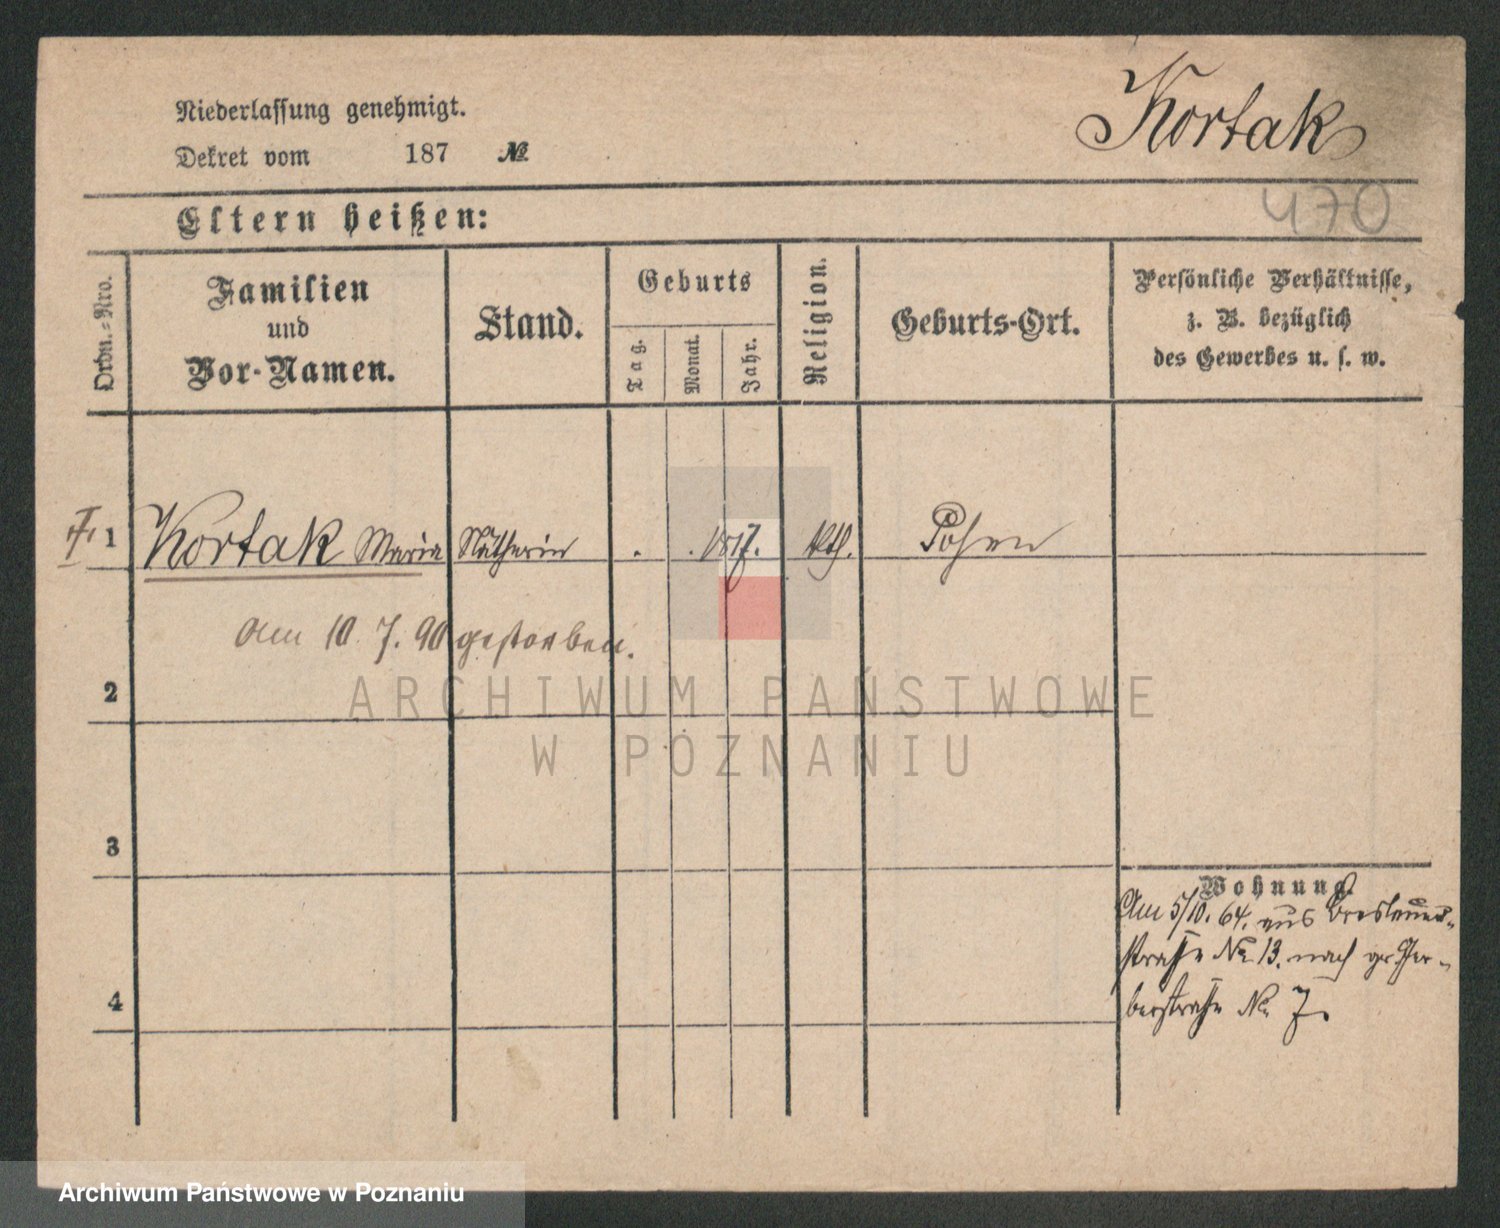 Kortak
Niederlassung genehmigt.
Dekret vom 187 №
470
Eltern heißen:
Ordn.-Nro.
Familien
und
Vor-Namen.
Stand.
Geburts
Tag.
Monat.
Jahr.
Religion.
Geburts-Ort.
Persönliche Verhältnisse,
z. B. bezüglich
des Gewerbes u. s. w.
1 Kortak Maria Nätherin . . 1817. kth. Posen
Am 10. 7. 90 gestorben.
2
3
4
Wohnung.
Am 5/10. 64. aus Breslauer-
straße No. 13. nach gr. Ger-
berstraße No. 7.
ARCHIWUM PAŃSTWOWE
W POZNANIU
Archiwum Państwowe w Poznaniu